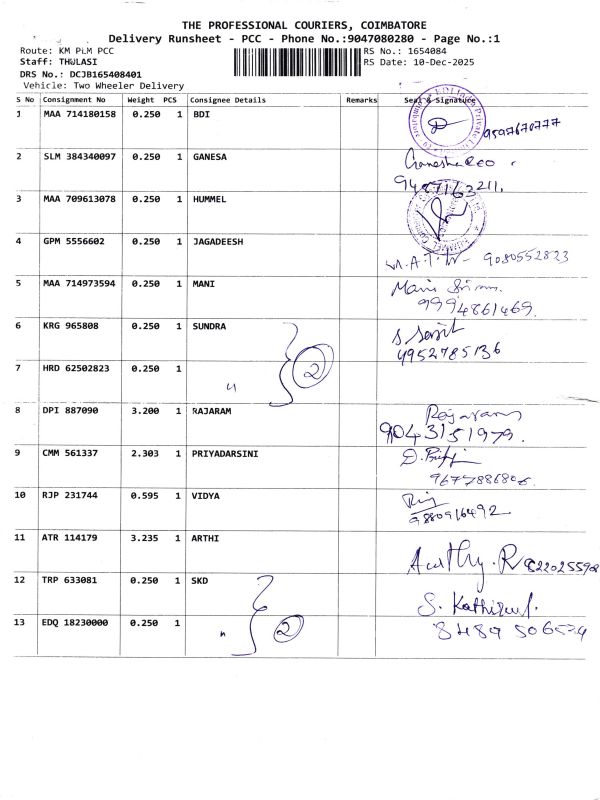 THE PROFESSIONAL COURIERS, COIMBATORE
Delivery Runsheet - PCC - Phone No.:9047080280 - Page No.:1
Route: KM PLM PCC RS No.: 1654084
Staff: THULASI RS Date: 10-Dec-2025
DRS No.: DCJB165408401
Vehicle: Two Wheeler Delivery
S No Consignment No Weight PCS Consignee Details Remarks Seal & Signature
1 MAA 714180158 0.250 1 BDI 9597670777
2 SLM 384340097 0.250 1 GANESA
9487163211.
3 MAA 709613078 0.250 1 HUMMEL
4 GPM 5556602 0.250 1 JAGADEESH
9080552823
5 MAA 714973594 0.250 1 MANI Mani
9994861469.
6 KRG 965808 0.250 1 SUNDRA
9952785136
7 HRD 62502823 0.250 1 " 2
8 DPI 887090 3.200 1 RAJARAM Rajaram
9043151979.
9 CMM 561337 2.303 1 PRIYADARSINI
9677886806.
10 RJP 231744 0.595 1 VIDYA
9880916492
11 ATR 114179 3.235 1 ARTHI Aarthy.R
12 TRP 633081 0.250 1 SKD
13 EDQ 18230000 0.250 1 " 2